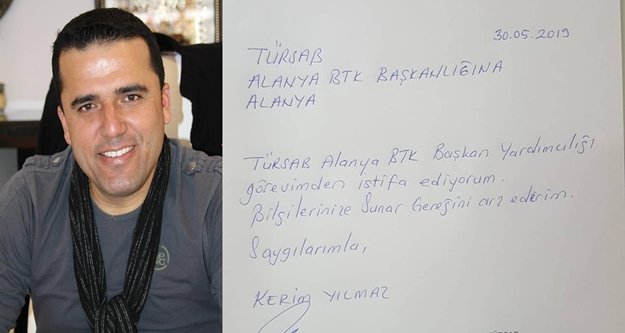 30.05.2019
TÜRSAB
ALANYA BTK BAŞKANLIĞINA
ALANYA
TÜRSAB Alanya BTK Başkan Yardımcılığı
görevimden istifa ediyorum.
Bilgilerinize Sunar Gereğini arz ederim.
Saygılarımla,
KERİM YILMAZ